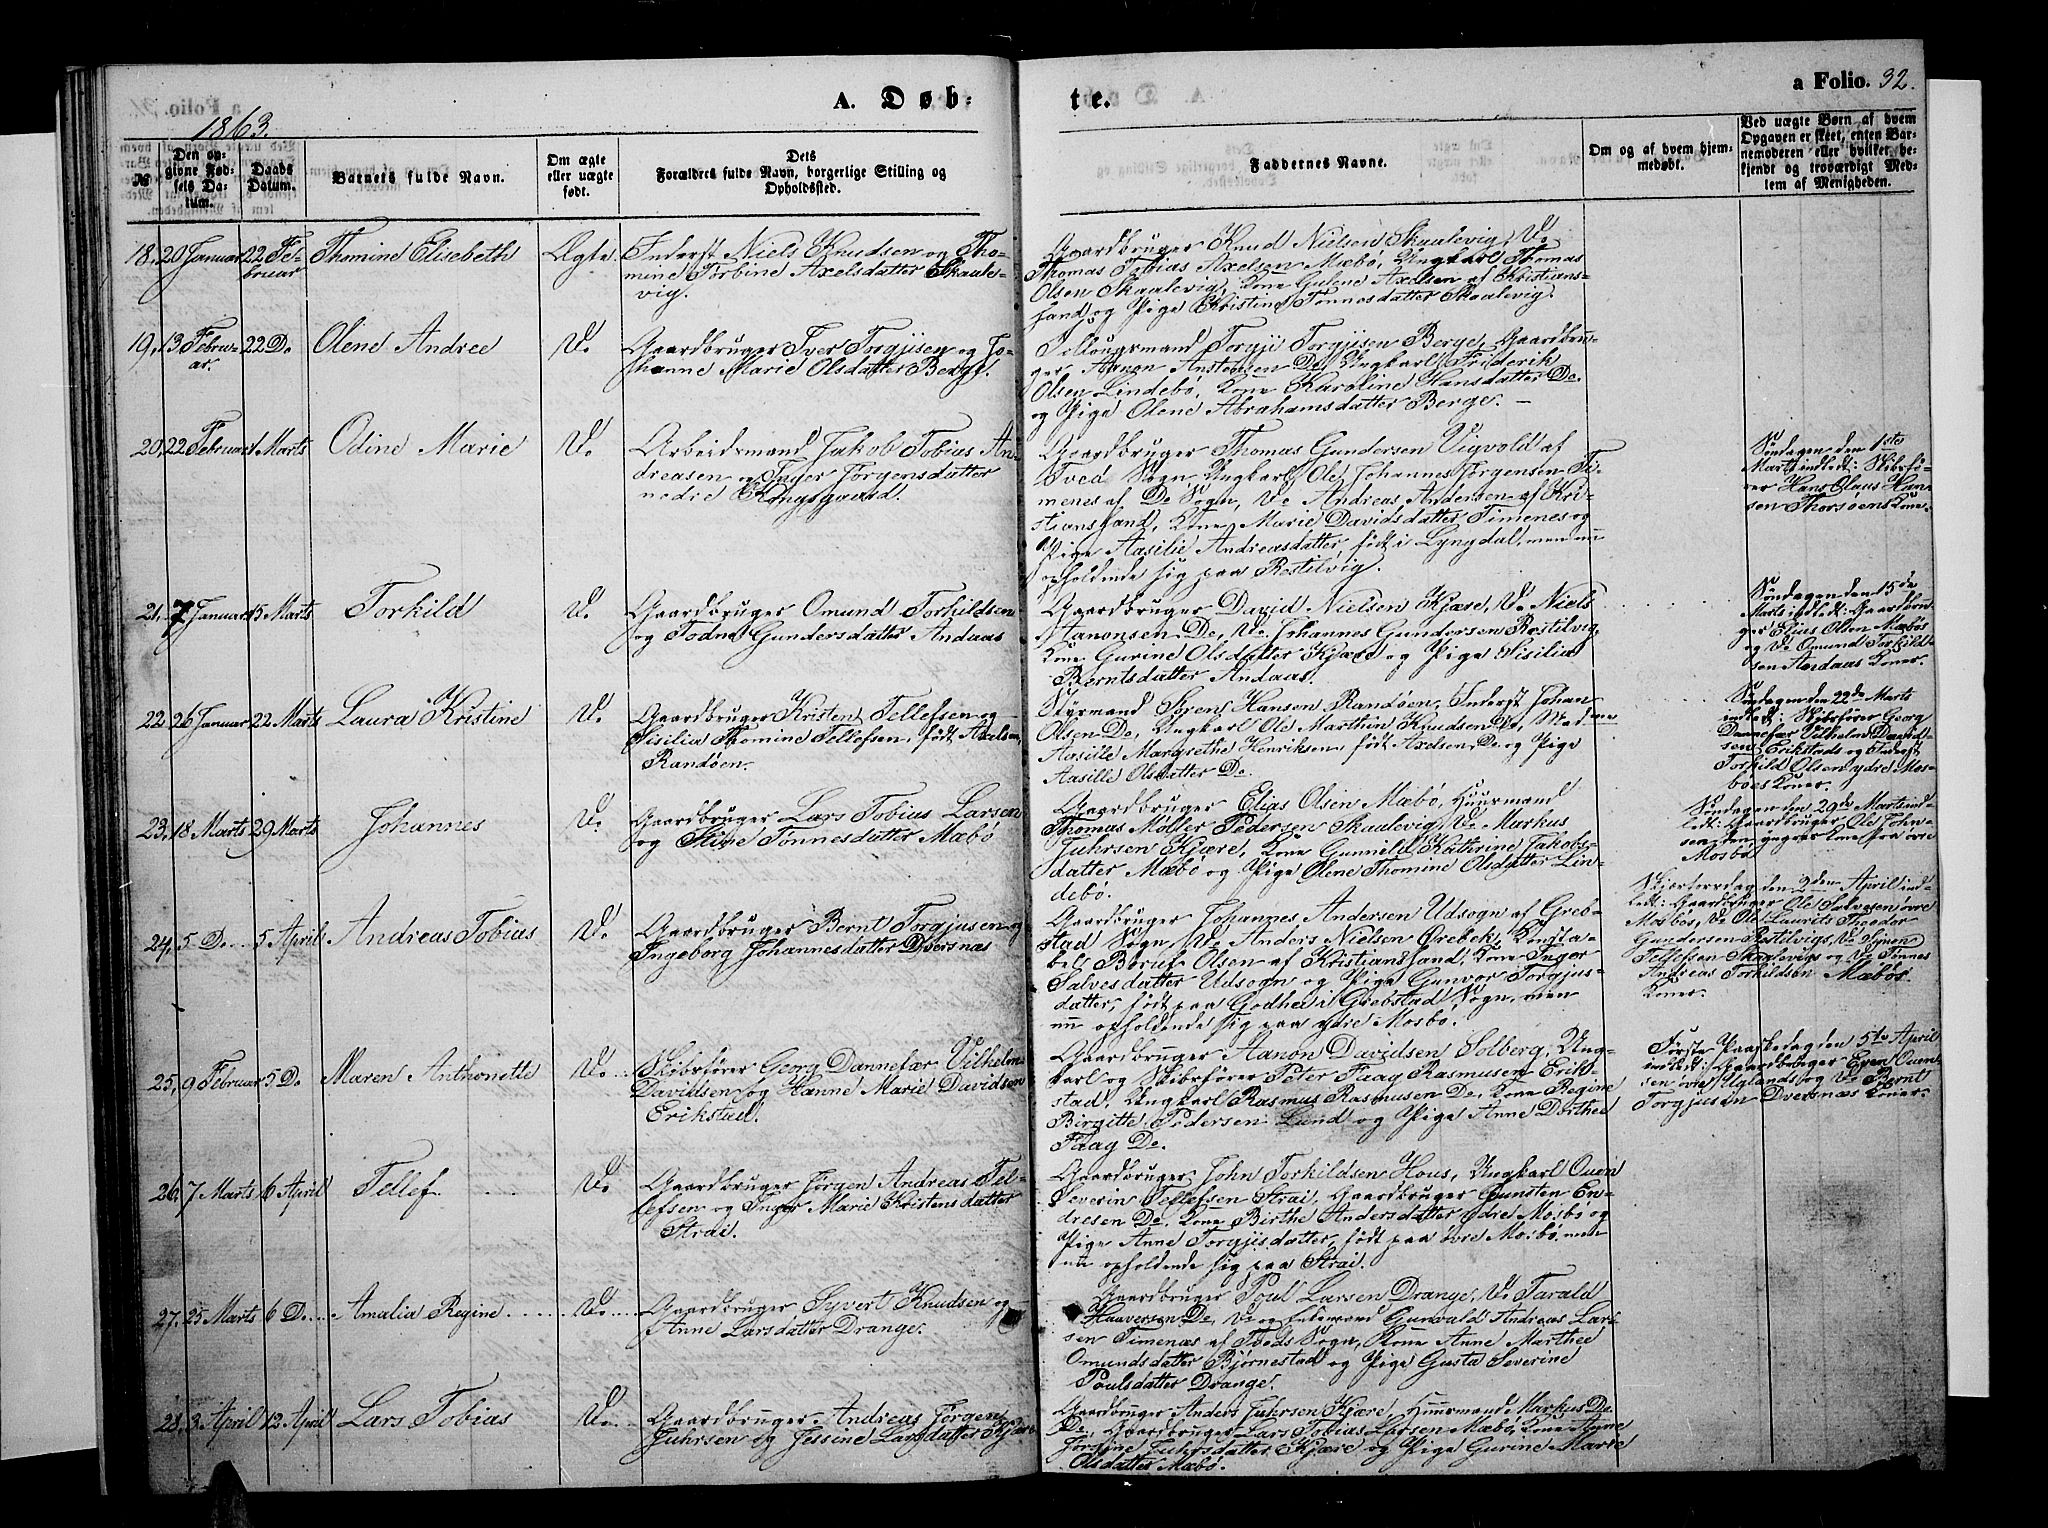 A. Døb-
te.
a Folio. 32.
1863.
№
Den op-
givne Fød-
sels Da-
tum.
Daabs
Datum.
Barnets fulde Navn.
Om ægte
eller uægte
født.
Dets
Forældres fulde Navn, borgerlige Stilling og
Opholdssted.
Faddernes Navne.
Om og af hvem hjem-
medøbt.
Ved uægte Børn af hvem
Opgaven er skeet, enten Bar-
nemoderen eller hvilket be-
kjendt og troværdigt Med-
lem af Menigheden.
18, 20 Januar 22 Fe-
bruar
Thomine Elisabeth
Ægte.
Inderst Niels Knudsen og Tho-
mine Torbine Axelsdatter Skaale-
vig.
Gaardbruger Knud Nielsen Skaalevig, Do
Thomas Tobias Axelsen Mæbø, Ungkarl Thomas
Olsen Skaalevig, Kone Gulene Axelsen af Kristians-
sand og Pige Kristine Tønnesdatter Skaalevig.
19, 13 Febru-
ar. 22 Do
Olene Andree
Do.
Gaardbruger Iver Torgjusen og Jo-
hanne Marie Olsdatter Berge.
Følougsmand Torgju Torgjusen Berge, Gaardbru-
ger Aanon Anstensen Do, Ungkarl Friderik
Olsen Lindebø, Kone Karoline Hansdatter Do.
og Pige Olene Abrahamsdatter Berge. —
20, 22 Februar 1 Marts
Odine Marie
Do.
Arbeidsmand Jakob Tobias An-
dreasen og Inger Jørgensdatter
nedre Kongsgaard.
Gaardbruger Thomas Gundersen Vigvold af
Tved Sogn, Ungkarl Ole Johannes Jørgensen Ti-
menes af Do Sogn, Do Andreas Andersen af Kri-
stianssand, Kone Marie Davidsdatter Timenes og
Pige Aasilie Andreasdatter, født i Lyngdal, men nu
opholdende sig paa Restilvig.
Søndagen den 1ste
Marts indledt: Skibsfø-
rer Hans Olaus Han-
sen Thorsøens Kone.
21, 7 Januar 15 Marts
Torkild
Do.
Gaardbruger Omund Torkildsen
og Todne Gundersdatter Andaas
Gaardbruger David Nielsen Kjære, Do Niels
Aanonsen Do, Do Johannes Gundersen Restilvig,
Kone Gurine Olsdatter Kjære og Pige Sisilia
Berntsdatter Andaas.
Søndagen den 15de
Marts indledt: Gaardbru-
ger Elias Olsen Mæbøs
og Do Omund Torkild-
sen Andaas Koner.
22 26 Januar 22 Marts
Laura Kristine
Do.
Gaardbruger Kristen Tellefsen og
Sisilia Thomine Tellefsen, født Axelsen,
Randøen.
Styrmand Søren Hansen Randøen, Inderst Johan
Olsen Do, Ungkarl Ole Marthin Knudsen Do, Madme
Aasille Margrethe Henriksen, født Axelsen, Do og Pige
Aasille Olsdatter Do
Søndagen den 22de Marts
indledt: Skibsfører Georg
Dannefær Vilhelm David-
sens Erikstads og Inderst
Torkild Olsen ydre Mos-
bøes Koner.
23, 18 Marts 29 Marts
Johannes
Do.
Gaardbruger Lars Tobias Larsen
og Stine Tønnesdatter Mæbø
Gaardbruger Elias Olsen Mæbø, Huusmand
Thomas Møller Pedersen Skaalevig, Do Markus
Juhrsen Kjære, Kone Gunnild Kathrine Jakobs-
datter Mæbø og Pige Olene Thomine Olsdatter Lin-
debø.
Søndagen den 29de Marts ind-
ledt: Gaardbruger Ole John-
sens Kone paa øvre
Mosbø
24, 5 Do 5 April
Andreas Tobias
Do.
Gaardbruger Bernt Torgjusen og
Ingeborg Johannesdatter Dversnæs
Gaardbruger Johannes Andersen Udsogn af Greb-
stad Sogn, Do Anders Nielsen Ørebek, Konsta-
bel Børuf Olsen af Kristianssand, Kone Inger
Salvesdatter Udsogn og Pige Gunvor Torgjus-
datter, født paa Godhei i Grebstad Sogn, men
nu opholdende sig paa ydre Mosbø.
Skjærtorsdag den 2den April ind-
ledt: Gaardbruger Ole Salvesen øvre
Mosbøs, Do Ole Laurits Theodor
Gundersen Restilvigs, Do
Tellefsen Skaalevigs og Do Tønnes
Andreas Torkildsen Mæbøs
Koner.
25, 9 Februar 5 Do
Maren Anthonette
Do.
Skibsfører Georg Dannefær Vilhelm
Davidsen og Hanne Marie Davidsen
Erikstad.
Gaardbruger Aanon Davidsen Solberg, Ung-
karl og Skibsfører Peter Faag Rasmusen Erik-
stad, Ungkarl Rasmus Rasmusen Do, Kone Regine
Birgitte Pedersen Lund og Pige Anne Dorthee
Faag Do.
Første Paaskedag den 5te April
indledt: Gaardbruger Even Ouen-
sen øvre Uglands og Do Bernt
Torgjusen Dversnæs Koner.
26, 7 Marts 6 April
Tellef
Do.
Gaardbruger Jørgen Andreas Tel-
lefsen og Inger Marie Kristensdatter
Strai.
Gaardbruger John Torkildsen Hous, Ungkarl Ouen
Severin Tellefsen Strai, Gaardbruger Gunsten En-
dresen Do, Kone Birthe Andersdatter ydre Mosbø og
Pige Anne Torgjusdatter, født paa øvre Mosbø, men
nu opholdende sig paa Strai.
27. 25 Marts 6 Do
Amalia Regine
Do.
Gaardbruger Syvert Knudsen og
Anne Larsdatter Drange.
Gaardbruger Poul Larsen Drange, Do Tarald
Haaversen Do, Do og Enkemand Gunvald Andreas Lar-
sen Timenæs af Tveds Sogn, Kone Anne Marthee
Omundsdatter Bjørnestad og Pige Gusta Severine
Poulsdatter Drange.
28. 3 April 12 April
Lars Tobias
Do.
Gaardbruger Andreas Jørgen
Juhrsen og Jessine Larsdatter Kjære
Gaardbruger Anders Juhrsen Kjære, Huusmand Markus Do
Do, Gaardbruger Lars Tobias Larsen Mæbø, Kone Anne
Jørgine Juhrsdatter Kjære og Pige Gurine Marie
Olsdatter Mæbø.